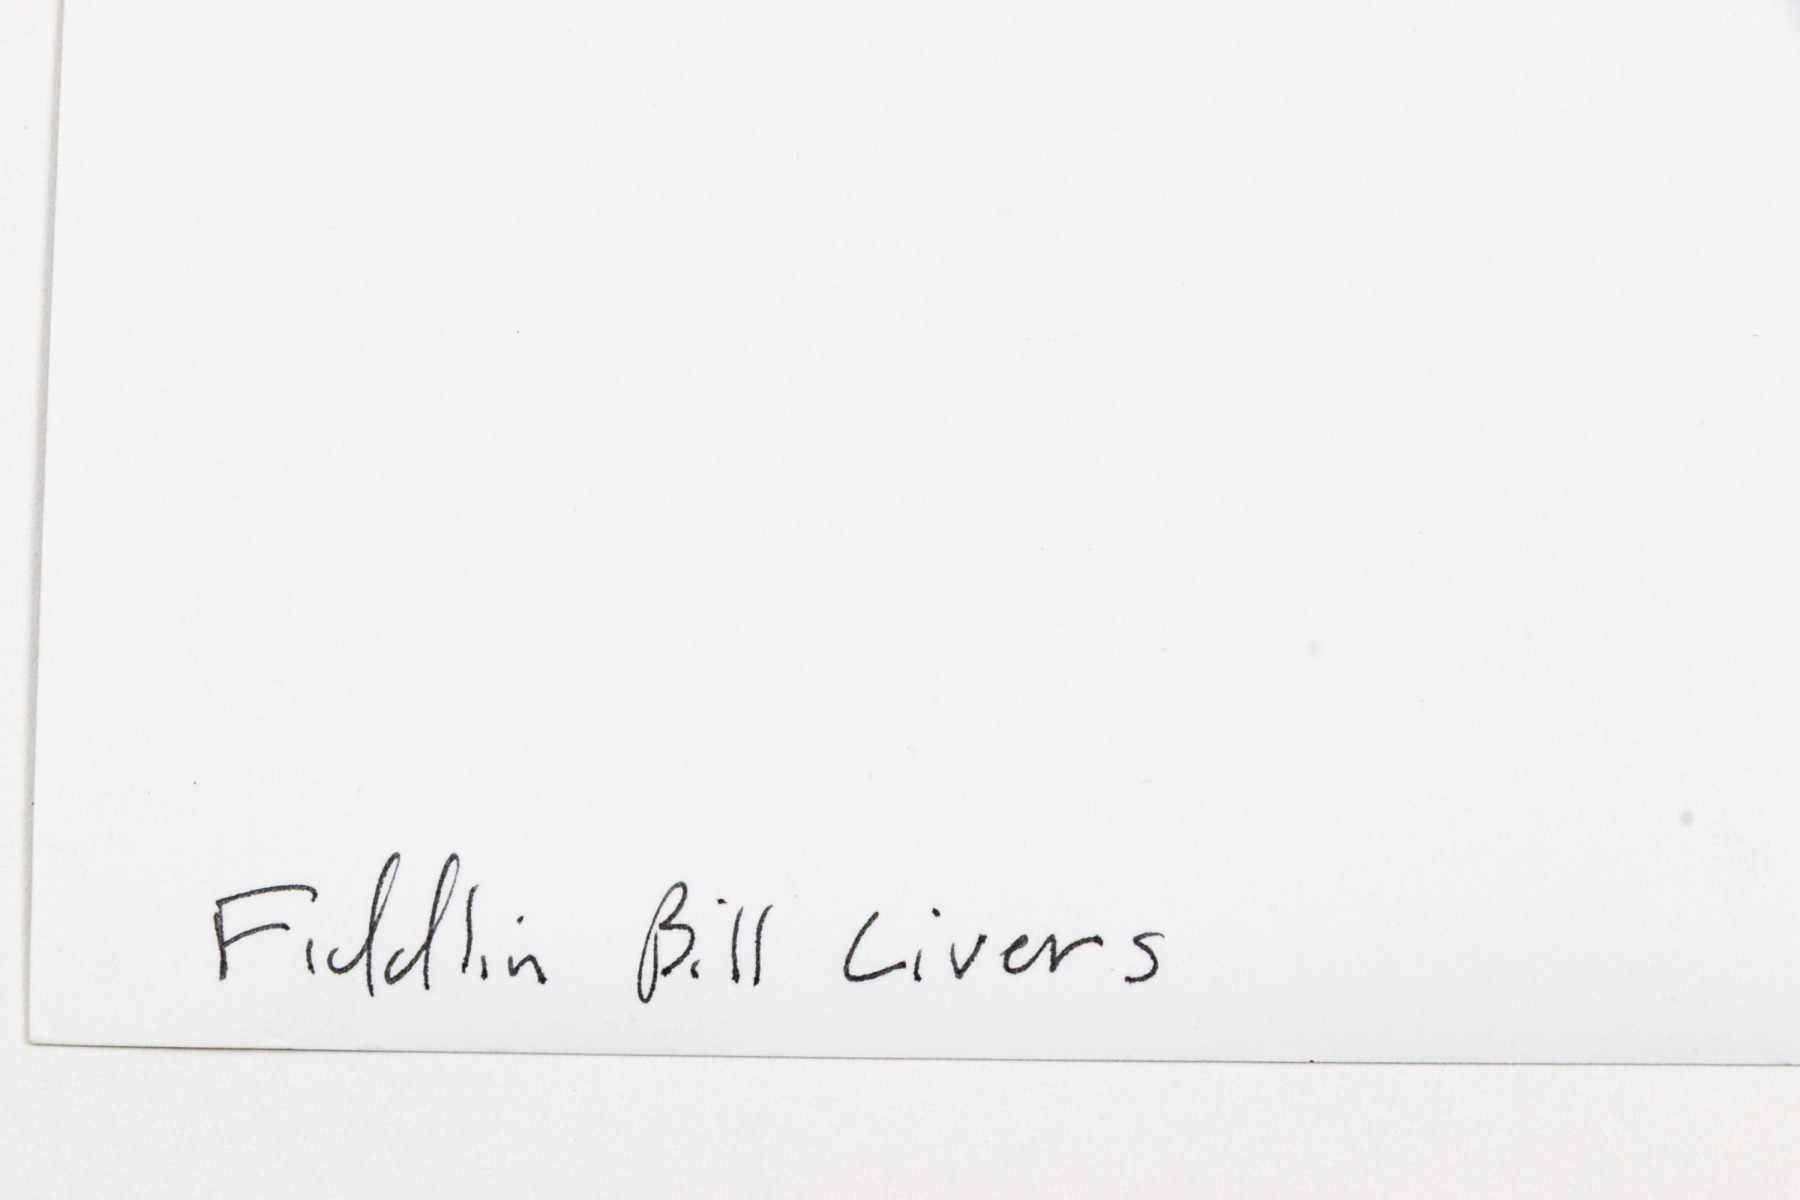 Fiddlin Bill Livers